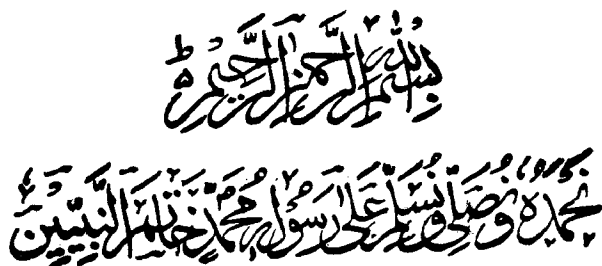 بِسْمِ اللهِ الرَّحْمٰنِ الرَّحِيْمِ ۵ ط
نَحْمَدُهٗ وَنُصَلِّیْ وَنُسَلِّمُ عَلٰی رَسُوْلِهٖ مُحَمَّدٍ خَاتَمِ النَّبِیِّیْنَ